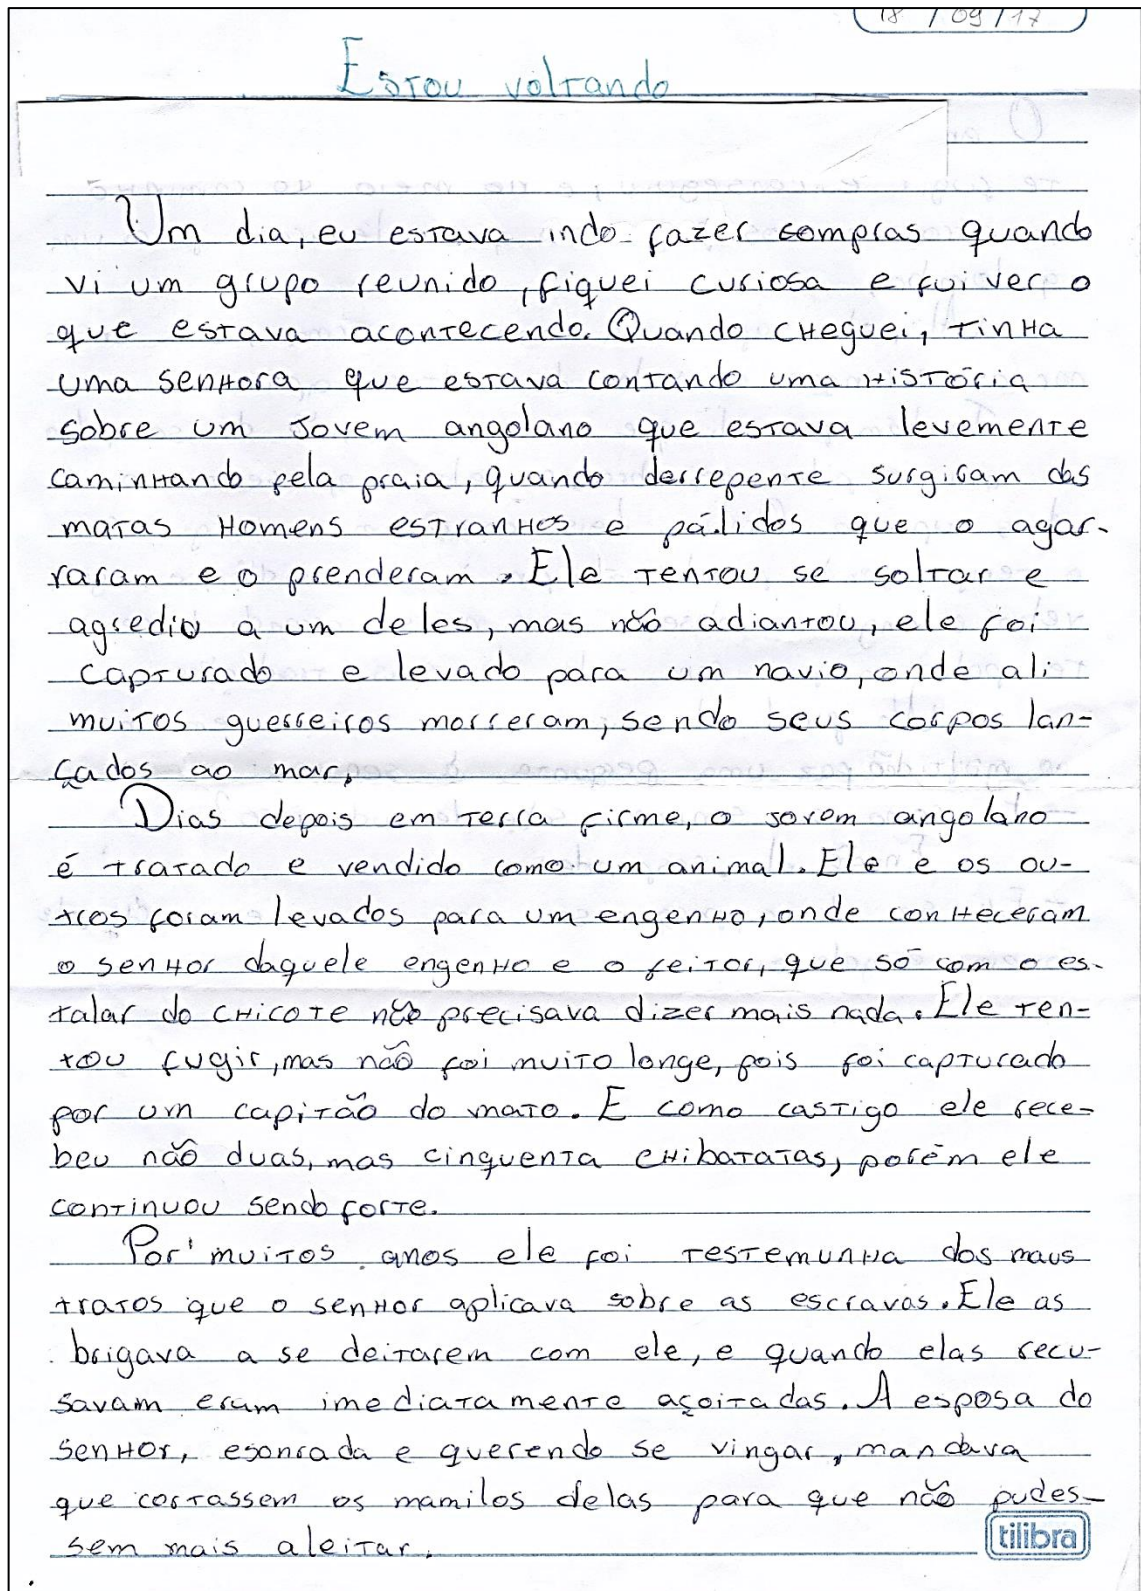 18 / 09 / 17
Estou voltando
Um dia, eu estava indo fazer compras quando
vi um grupo reunido, fiquei curiosa e fui ver o
que estava acontecendo. Quando cheguei, tinha
uma senhora que estava contando uma história
sobre um jovem angolano que estava levemente
caminhando pela praia, quando derrepente surgiram das
matas homens estranhos e pálidos que o agar-
raram e o prenderam. Ele tentou se soltar e
agredio a um deles, mas não adiantou, ele foi
capturado e levado para um navio, onde ali
muitos guerreiros morreram, sendo seus corpos lan-
çados ao mar.
Dias depois em terra firme, o jovem angolano
é tratado e vendido como um animal. Ele e os ou-
tros foram levados para um engenho, onde conheceram
o senhor daquele engenho e o feitor, que só com o es-
talar do chicote não precisava dizer mais nada. Ele ten-
tou fugir, mas não foi muito longe, pois foi capturado
por um capitão do mato. E como castigo ele rece-
beu não duas, mas cinquenta chibatatas, porém ele
continuou sendo forte.
Por muitos anos ele foi testemunha dos maus
tratos que o senhor aplicava sobre as escravas. Ele as
brigava a se deitarem com ele, e quando elas recu-
savam eram imediatamente açoitadas. A esposa do
senhor, esonrada e querendo se vingar, mandava
que cortassem os mamilos delas para que não pudes-
sem mais aleitar.
tilibra